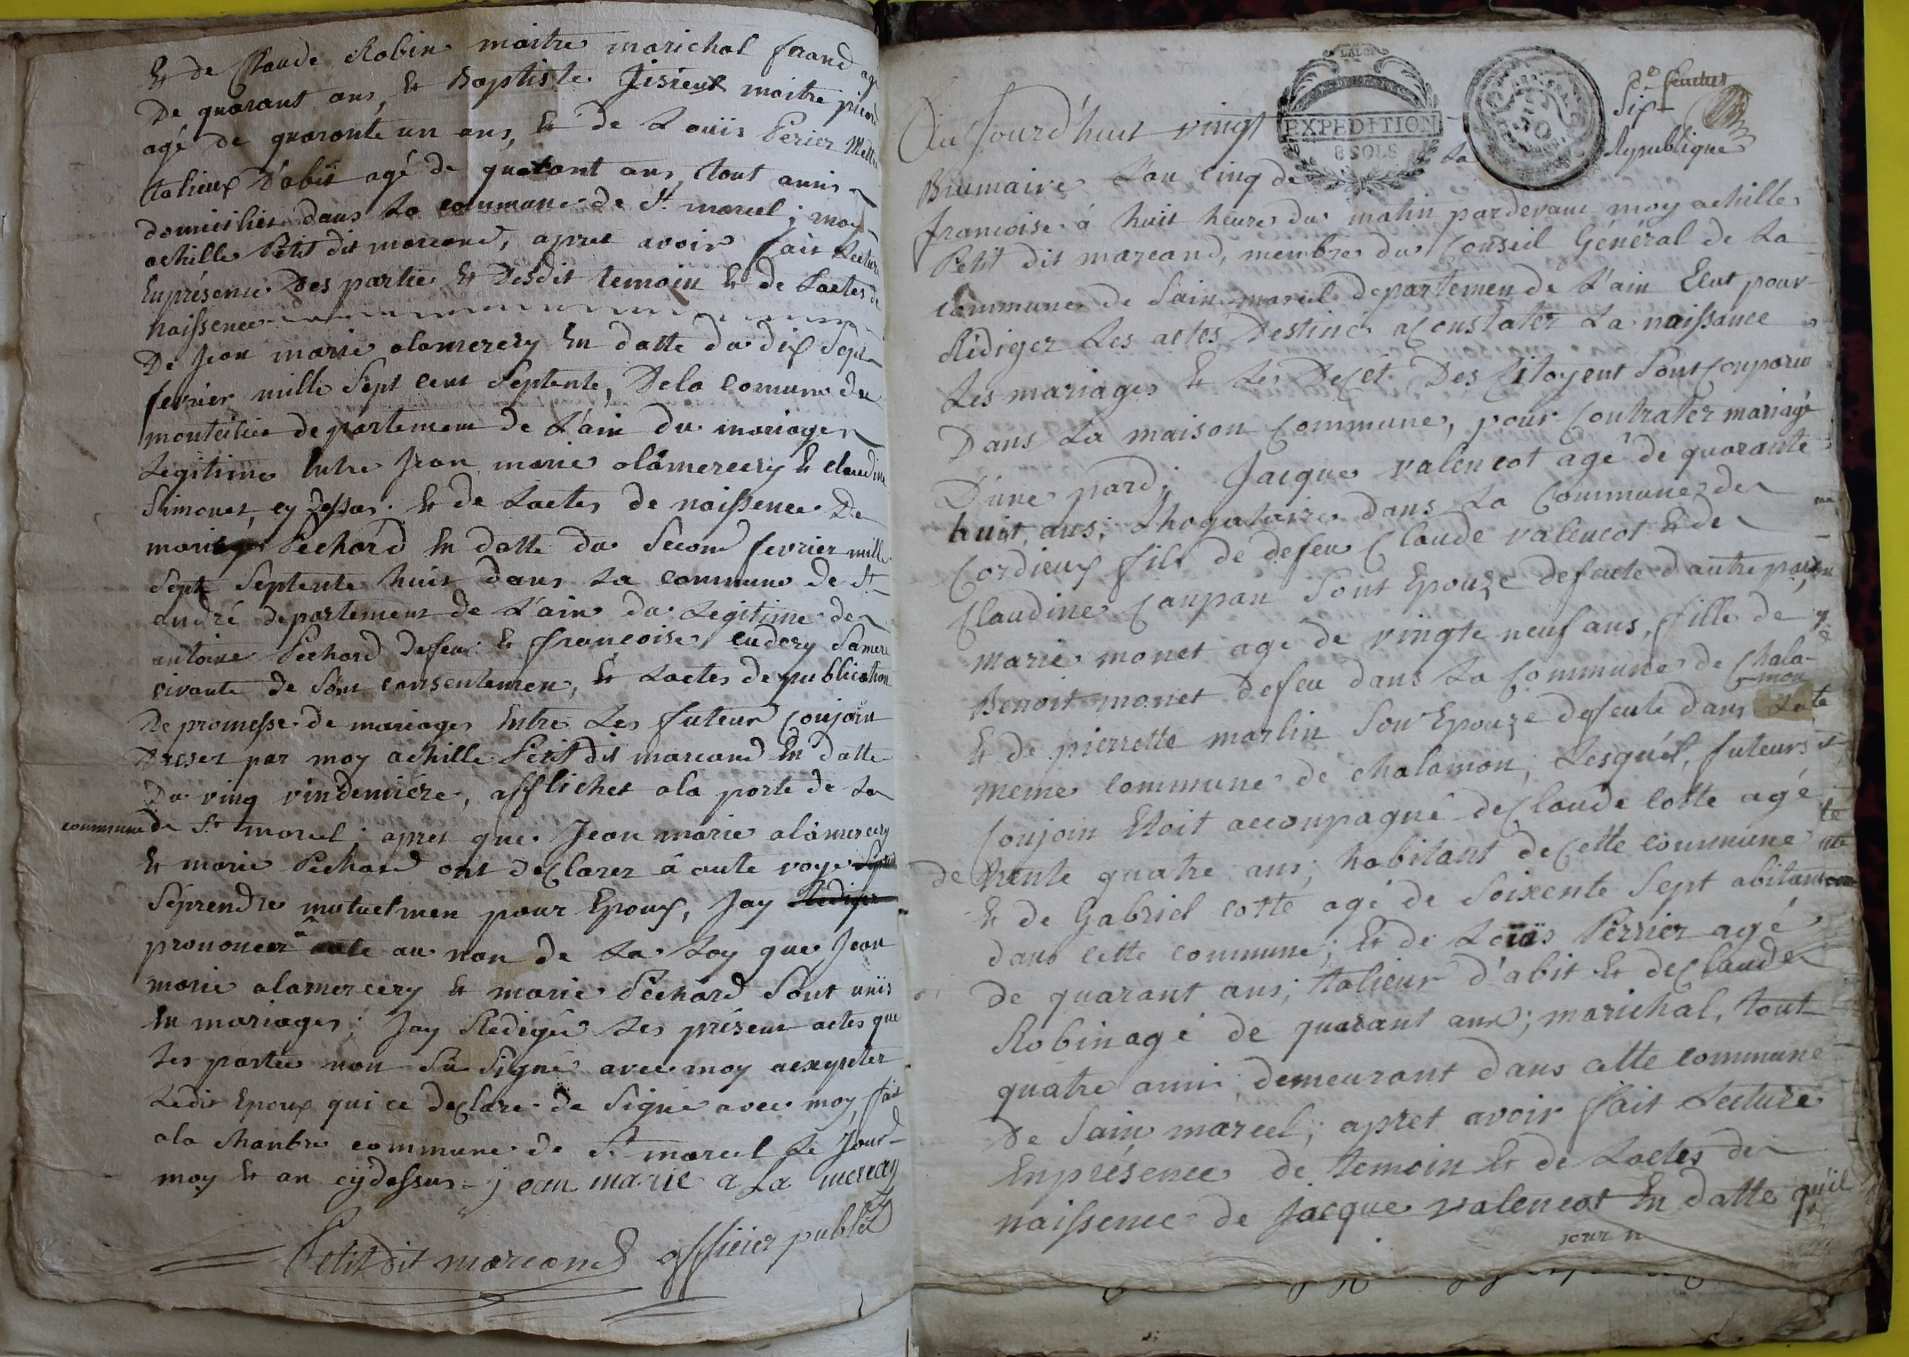 Et de Claude Robin maitre marichal ferand agé
De quarant ans, Et Baptiste maitre
agé de quaronte un ans, Et de Louiis Perier
talieux D'abit agé de quarant ans, tout amis
domicilies dans La commune de St. marcel; moy
achille Petit dit marcand, apret avoir fait Lecture
Enprésence Des partie Et Desdit temoin Et de Lactes de
naissence
De Jean marie alamercery En datte du dix Sept
fevrier mille Sept cent Septente, Dela comune de
departement de L'ain du mariage
Legitime Entre Jean marie alamercery Et claudine
Simonet, cy dessus. Et de Lactes de naissence De
marie Pechard En datte du Second fevrier mille
Sept Septente huit dans La commune de St.
andré departement de L'ain du Legitime de
antoine Pechard defeu Et francoise Samere
vivante de Sont consentemen, Et Lactes de publication
De promesse de mariages Entre Les futeur Conjoin
Dreser par moy achille Petit dit marcand En datte
Du ving vindemiére, afflichet ala porte de La
commune de St. marcel. apret que Jean marie alamercery
Et marie Pechard ont declarer á aute voye
Séprendre mutuelmen pour Epoux, Jay Rediger
prononcer au non de La Loy que Jean
marie alamercery Et marie Pechard Sont uniis
En mariages; Jay Redigée Les présent actes que
Les partie non Su Signé avec moy acxepter
Ledit Epoux qui ce declare de Signé avec moy, fait
ala chanbre commune de St. marcel Le Jour
moy Et an cydessus - jean marie a La mercery
Petit dit marcand officier publit
EXPEDITION
8 SOLS
Au Jourd'huit vingt
Brumaire L'an Cinq de La Republique
francoise á huit heure du matin pardevant moy achille
Petit dit marcand, membre du Conseil Général de La
commune de Sain marcel departemen de L'ain Elut pour
Rédiger Les actes Destiné a Constater La naissance
Les mariages Et Les Decét Des Citoyent Sont Conparu
Dans La maison Commune, pour Contrater mariage
D'une pard; Jacque valencot agé de quarante
huit, ans; dans La Commune de
Cordieux fils de defeu Claude valencot Et de
Claudine Sont Epouze defeute d'autre part,
marie monet agé de vingte neuf ans, fille de
Benoit monet defeu dans La Commune de Chala-
mon
Et de pierrette marlin Son Epouze defeute dans Late
meme commune de chalamon; Lesquél, futeurs
Conjoin Etoit acconpagné de Claude Cotte agé
de trente quatre ans; habitant de Cette commune
Et de Gabriel cotte agé de Soixente Sept abitant
dans cette commune; Et de Louiis Perrier agé
de quarant ans; talieur d'abit Et de Claude
Robin agé de quarant ans; marichal, tout
quatre ami demeurant dans cette commune
De Sain marcel; apret avoir fait Lecture
Enprésence de temoin Et de Lactes de
naissence de Jacque valencot En datte qu'il